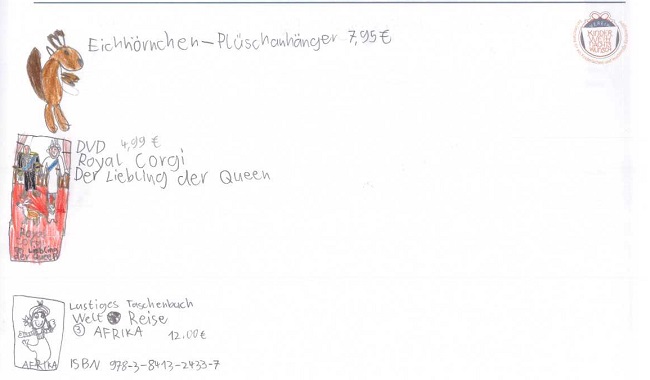 Eichhörnchen-Plüschanhänger 7,95 €
KINDER
WEIH
NACHTS
WUNSCH
DVD 4,99 €
Royal Corgi
Der Liebling der Queen
Royal
Corgi
der Queen
Lustiges Taschenbuch
Welt Reise
③ AFRIKA 12.00 €
AFRIKA
ISBN 978-3-8413-2433-7